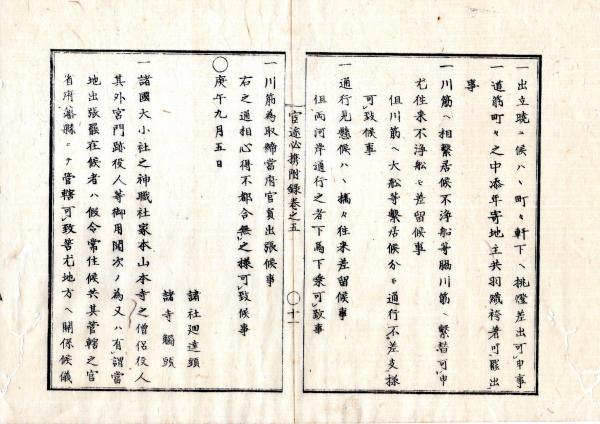 一出立暁ニ候ハヽ町々軒下ヘ挑燈差出可申事
一道筋町々之中添年寄地主共羽織袴著可罷出
事
一川筋ヘ相繫居候不浄船等脇川筋ヘ繫替可申
尤往来不浄船モ差留候事
但川筋ヘ大船等繫居候分モ通行不差支様
可致候事
一通行見懸候ハヽ橋々往来差留候事
但両河岸通行之者下馬下乗可致事
官途必携附録巻之五
十一
一川筋為取締當府官員出張候事
右之通相心得不都合無之様可致候事
庚午九月五日
諸社廻達頭
諸寺觸頭
一諸國大小社之神職社家本山本寺之僧侶役人
其外宮門跡役人等御用聞次ノ為又ハ有謂當
地出張罷在候者ハ假令常住候共其管轄之官
省府藩縣ニテ管轄可致筈尤地方ヘ關係候儀